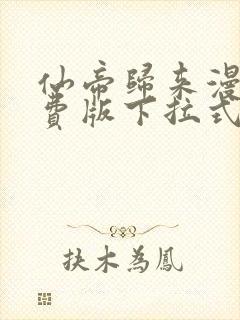 仙帝歸来漫
費版下拉式
扶木為鳳